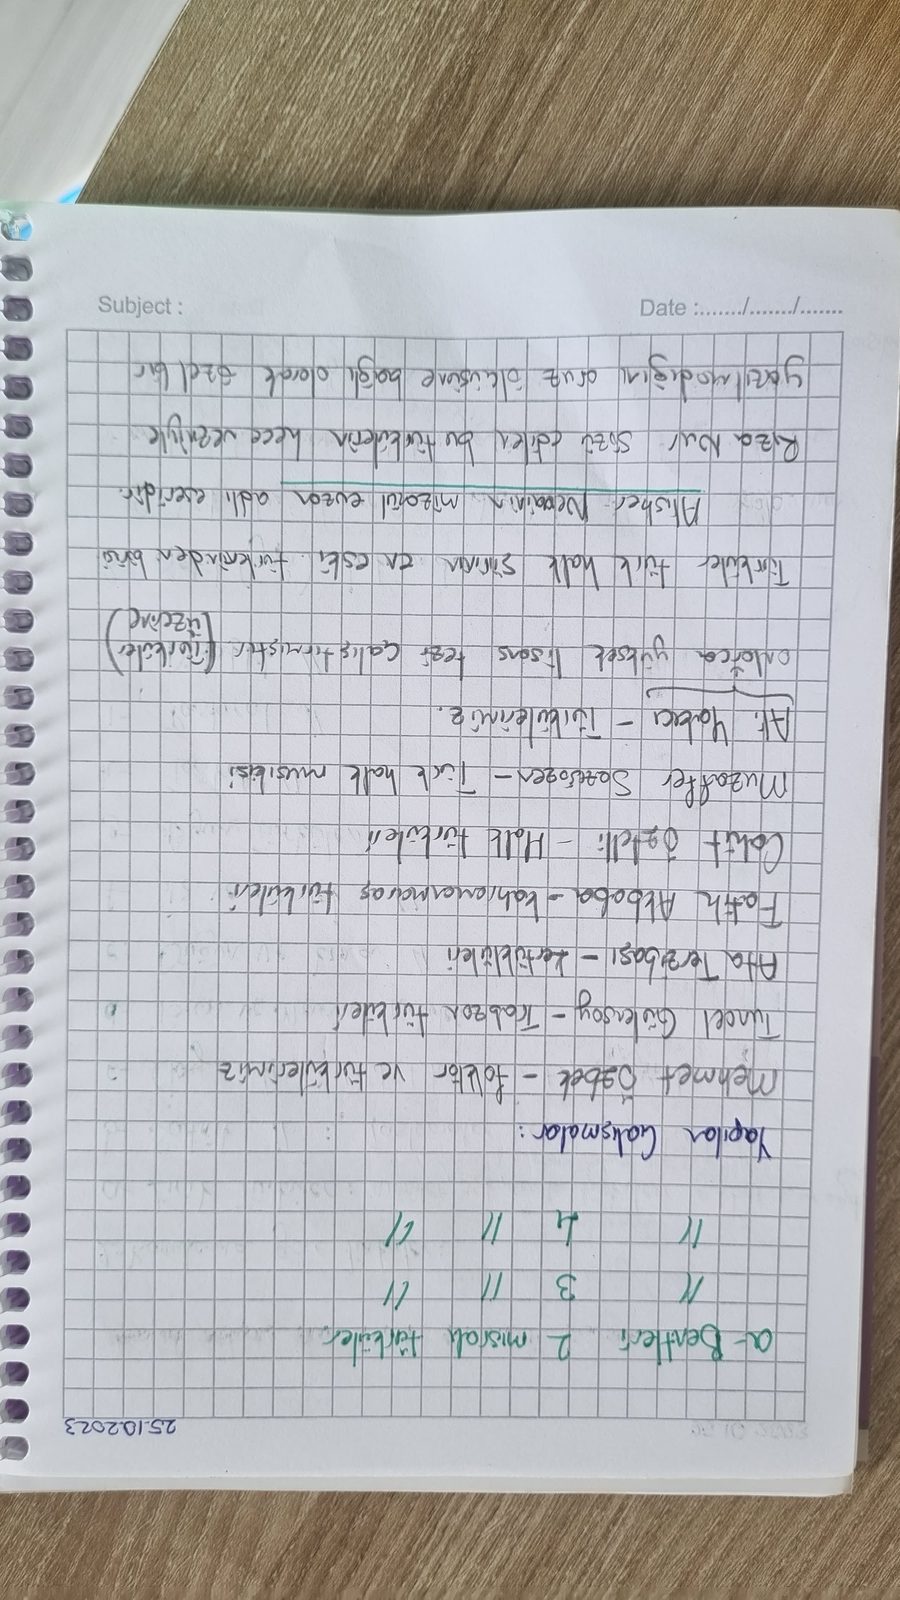 25.10.2023
a- Bentleri 2 mısralı türküler.
" 3 " "
" 4 " "
Yapılan Çalışmalar:
Mehmet Özbek - folklör ve türkülerimiz
Tuncel Gülensoy - Trabzon türküleri
Ata Terzibaşı -
Fatih Akbaba - kahramanmaraş türküleri
Cahit Öztelli - Halk türküleri
Muzaffer Sarısözen - Türk halk musikisi
Ali Yakıcı - Türkülerimiz.
onlarca yüksek lisans tezi çalıştırmıştır (Türküler üzerine)
Türküler türk halk şiirinin en eski türlerinden birisi
Alisher Nevainin mizanül evzan adlı eseridir.
Rıza Nur sözü edilen bu türkülerin hece vezniyle
yazılmadığını aruz ölçüsüne bağlı olarak özel bir
Subject :
Date :......./......./.......